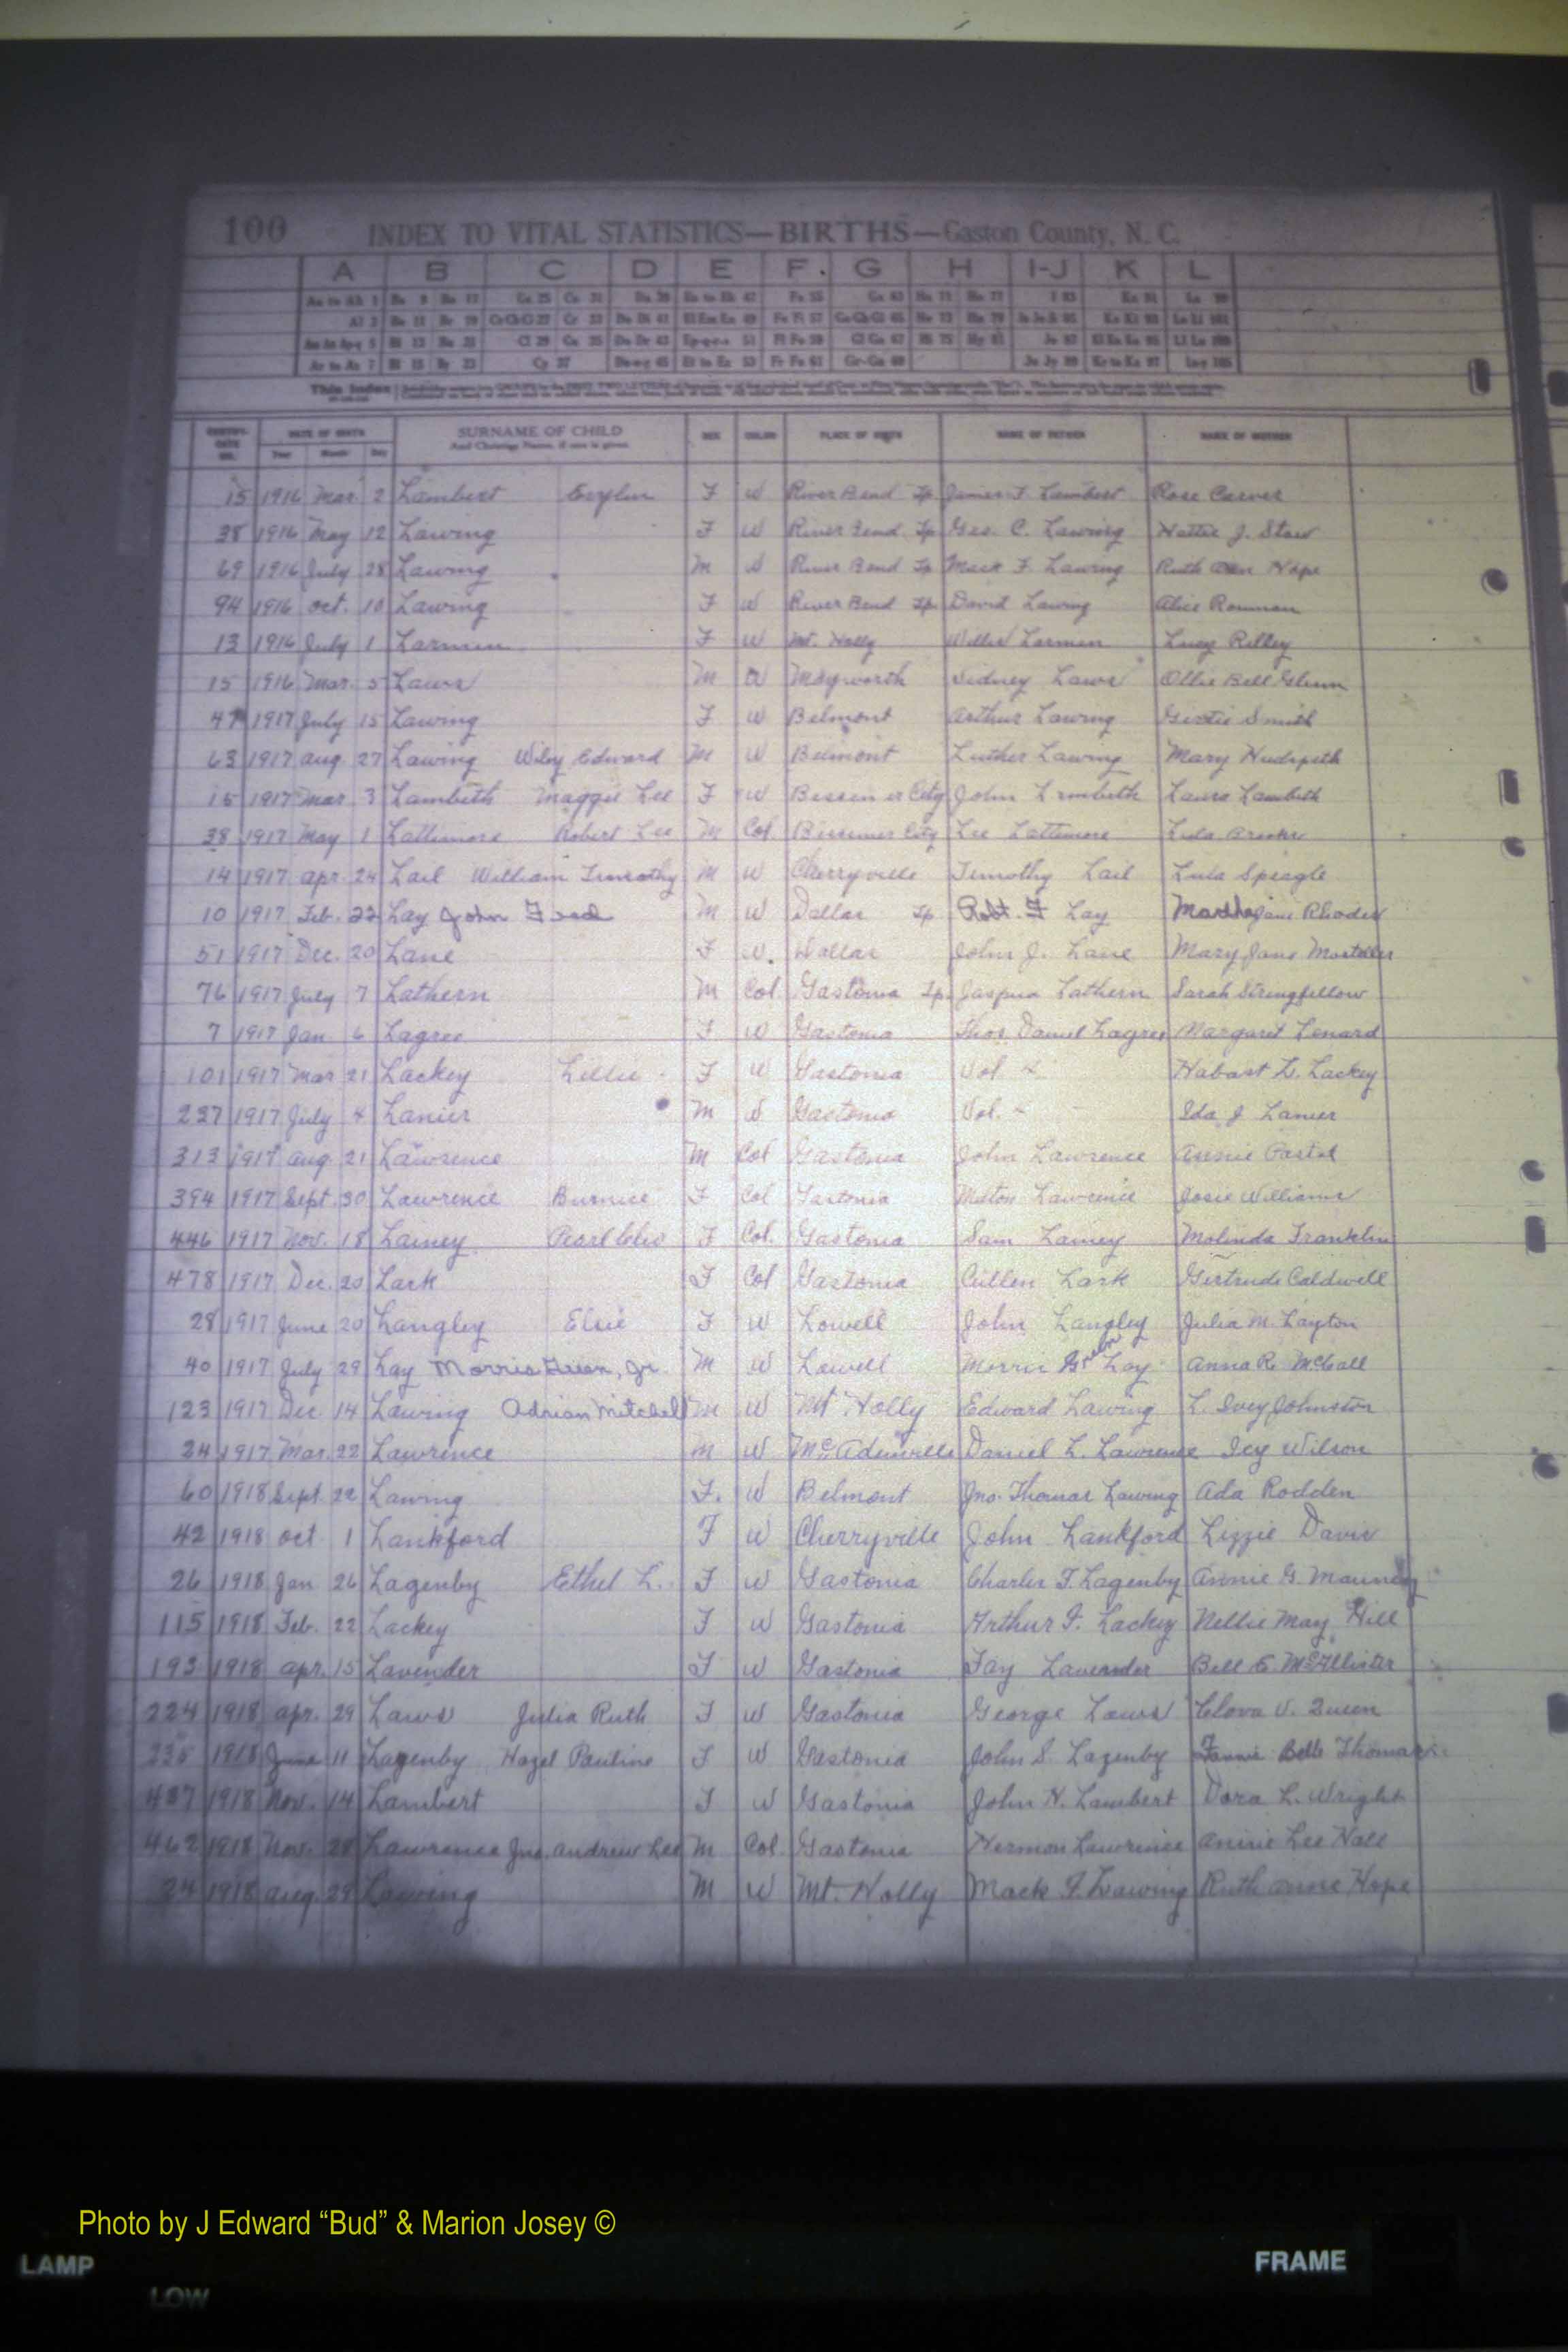 100 INDEX TO VITAL STATISTICS—BIRTHS—Gaston County, N. C.
A B C D E F. G H I-J K L
This Index
CERTIFI-CATE NO. DATE OF BIRTH Year Month Day SURNAME OF CHILD And Christian Name, if one is given. SEX COLOR PLACE OF BIRTH NAME OF FATHER NAME OF MOTHER
15 1916 Mar. 2 Lambert F W River Bend Tp. James F. Lambert Rose Carver
38 1916 May 12 Lawing F W River Bend Tp. Geo. C. Lawing Hattie J.
69 1916 July 28 Lawing M W River Bend Tp Mack F. Lawing Ruth Ann Hope
94 1916 Oct. 10 Lawing F W River Bend Tp. David Lawing Alice
13 1916 July 1 Larmen F W Mt. Holly Willie Larmen Lucy
15 1916 Mar. 5 Laws M W Mayworth Sidney Laws Ollie Bell Glenn
47 1917 July 15 Lawing F W Belmont Arthur Lawing Smith
63 1917 Aug. 27 Lawing Wiley Edward M W Belmont Luther Lawing Mary Hudspeth
15 1917 Mar 3 Lambeth Maggie Lee F W Bessemer City John Lambeth Laura Lambeth
38 1917 May 1 Lattimore Robert Lee M Col Bessemer City Lee Lattimore Lula
14 1917 Apr. 24 Lail William Timothy M W Cherryville Timothy Lail Lula Speagle
10 1917 Feb. 22 Lay John M W Dallas Tp Robt. F Lay Martha Jane Rhodes
51 1917 Dec. 20 Lane F W. Dallas John J. Lane Mary Jane Mosteller
76 1917 July 7 Lathern M Col Gastonia Tp. Lathern Sarah Stringfellow
7 1917 Jan. 6 Lagree F W Gastonia Thos. Daniel Lagree Margaret Lenard
101 1917 Mar 21 Lackey Lillie F W Gastonia Lackey
237 1917 July 4 Lanier M W Gastonia Ida J Lanier
313 1917 Aug. 21 Lawrence M Col Gastonia John Lawrence Annie
394 1917 Sept. 30 Lawrence Burnice F Col Gastonia Lawrence Josie Williams
446 1917 Nov. 18 Lainey Pearl F Col. Gastonia Sam Lainey Molinda Franklin
478 1917 Dec. 20 Lark F Col Gastonia Cullen Lark Gertrude Caldwell
28 1917 June 20 Langley Elsie F W Lowell John Langley Julia M. Layton
40 1917 July 29 Lay Morris Jr. M W Lowell Morris Lay Anna R. McCall
123 1917 Dec. 14 Lawing Adrian Mitchel M W Mt Holly Edward Lawing L. Ivey Johnston
24 1917 Mar. 22 Lawrence M W McAdenville Daniel L. Lawrence Icy Wilson
60 1918 Sept. 22 Lawing F. W Belmont Jno. Thomas Lawing Ada Rodden
42 1918 Oct 1 Lankford F W Cherryville John Lankford Lizzie Davis
26 1918 Jan 26 Lazenby Ethel L. F W Gastonia Charles F. Lazenby Annie G. Mauney
115 1918 Feb. 22 Lackey F W Gastonia Arthur F. Lackey Nellie May Hill
193 1918 Apr. 15 Lavender F W Gastonia Fay Lavender Bell E. McAllister
224 1918 Apr. 29 Laws Julia Ruth F W Gastonia George Laws Clova V. Queen
1918 June 11 Lazenby Hazel Pauline F W Gastonia John S. Lazenby Fannie Belle Thomas
437 1918 Nov. 14 Lambert F W Gastonia John H. Lambert Dora L. Wright
462 1918 Nov. 28 Lawrence Jno. Andrew Lee M Col. Gastonia Hermon Lawrence Annie Lee Hall
24 1918 Aug. 29 Lawing M W Mt. Holly Mack F. Lawing Ruth Anne Hope
Photo by J Edward “Bud” & Marion Josey ©
LAMP FRAME
LOW